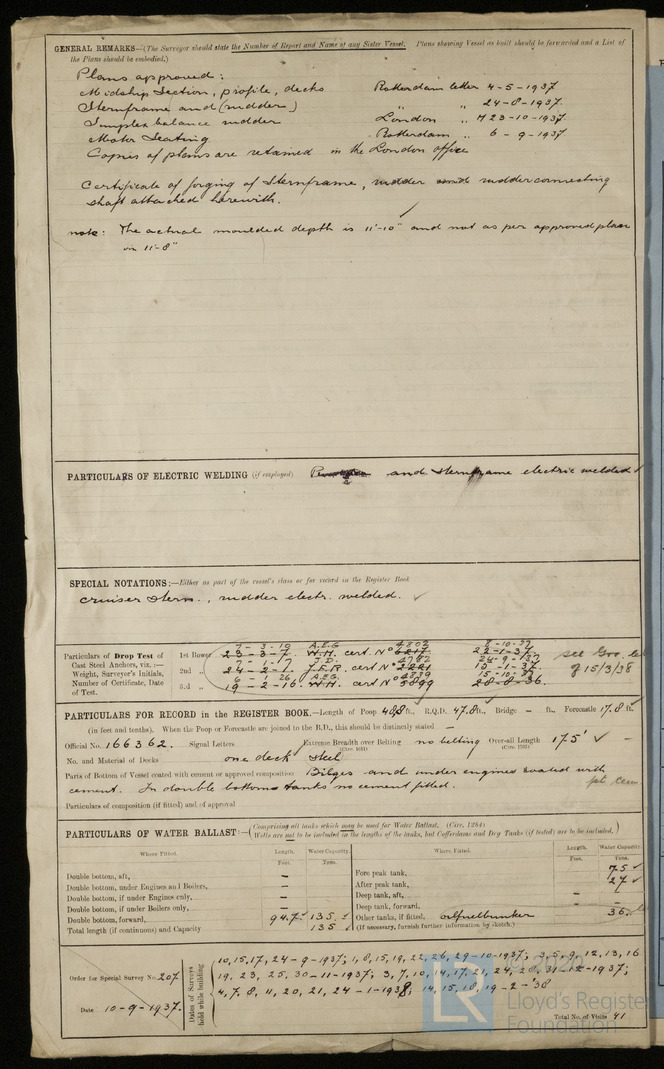 GENERAL REMARKS—(The Surveyor should state the Number of Report and Name of any Sister Vessel. Plans showing Vessel as built should be forwarded and a List of
the Plans should be embodied.)
Plans approved:
Midship Section, profile, decks Rotterdam letter 4-5-1937
Sternframe and (rudder) " " 24-8-1937.
Simplex balance rudder London " 23-10-1937
Motor Seating Rotterdam " 6-9-1937
Copies of plans are retained in the London office
Certificate of forging of Sternframe, rudder and rudder connecting
shaft attached herewith.
note: The actual moulded depth is 11'-10" and not as per approved plan
on 11'-8"
PARTICULARS OF ELECTRIC WELDING (if employed) and sternframe electric welded
SPECIAL NOTATIONS:—Either as part of the vessel's class or for record in the Register Book
cruiser stern., rudder electr. welded.
Particulars of Drop Test of
Cast Steel Anchors, viz.:—
Weight, Surveyor's Initials,
Number of Certificate, Date
of Test.
1st Bower 23-3-7. W.H. cert. No 22-1-37.
2nd " 24-2-1. J.F.R. cert. No 2221 15-1-37.
3rd " 19-2-16. W.H. cert No 5899 28-8-36.
of 15/3/38
PARTICULARS FOR RECORD IN THE REGISTER BOOK.—Length of Poop 48,8 ft., R.Q.D. 47.8 ft., Bridge – ft., Forecastle 17.8 ft.
(in feet and tenths). When the Poop or Forecastle are joined to the B.D., this should be distinctly stated –
Official No. 166362. Signal Letters Extreme Breadth over Belting no belting Over-all Length 175' –
(Circ. 1611) (Circ. 1703)
No. and Material of Decks one deck steel
Parts of Bottom of Vessel coated with cement or approved composition Bilges and under engines coated with
cement. In double bottom tanks no cement fitted.
Particulars of composition (if fitted) and of approval
PARTICULARS OF WATER BALLAST:—(Comprising all tanks which may be used for Water Ballast. (Circ. 1284)
Wells are not to be included in the lengths of the tanks, but Cofferdams and Dry Tanks (if tested) are to be included.)
Where Fitted. Length. Water Capacity. Where Fitted. Length. Water Capacity.
Feet. Tons. Feet. Tons.
Double bottom, aft, – Fore peak tank, 75
Double bottom, under Engines and Boilers, – After peak tank, 27
Double bottom, if under Engines only, – Deep tank, aft, – –
Double bottom, if under Boilers only, – Deep tank, forward, –
Double bottom, forward, 94.7 135 Other tanks, if fitted, oilfuelbunker 36.
Total length (if continuous) and Capacity 135 (If necessary, furnish further information by sketch.)
Order for Special Survey No. 207
Date 10-9-1937.
Dates of Surveys
held while building
10,15,17, 24-9-1937; 1,8,15,19,22,26,29-10-1937; 3,5,9,12,13,16
19, 23, 25, 30-11-1937; 3,7,10,14,17,21,24,28,31-12-1937;
4,7,8,11,20,21,24-1-1938; 14,15,18,19-2-'38
Total No. of Visits 41
LR
Lloyd's Register
Foundation